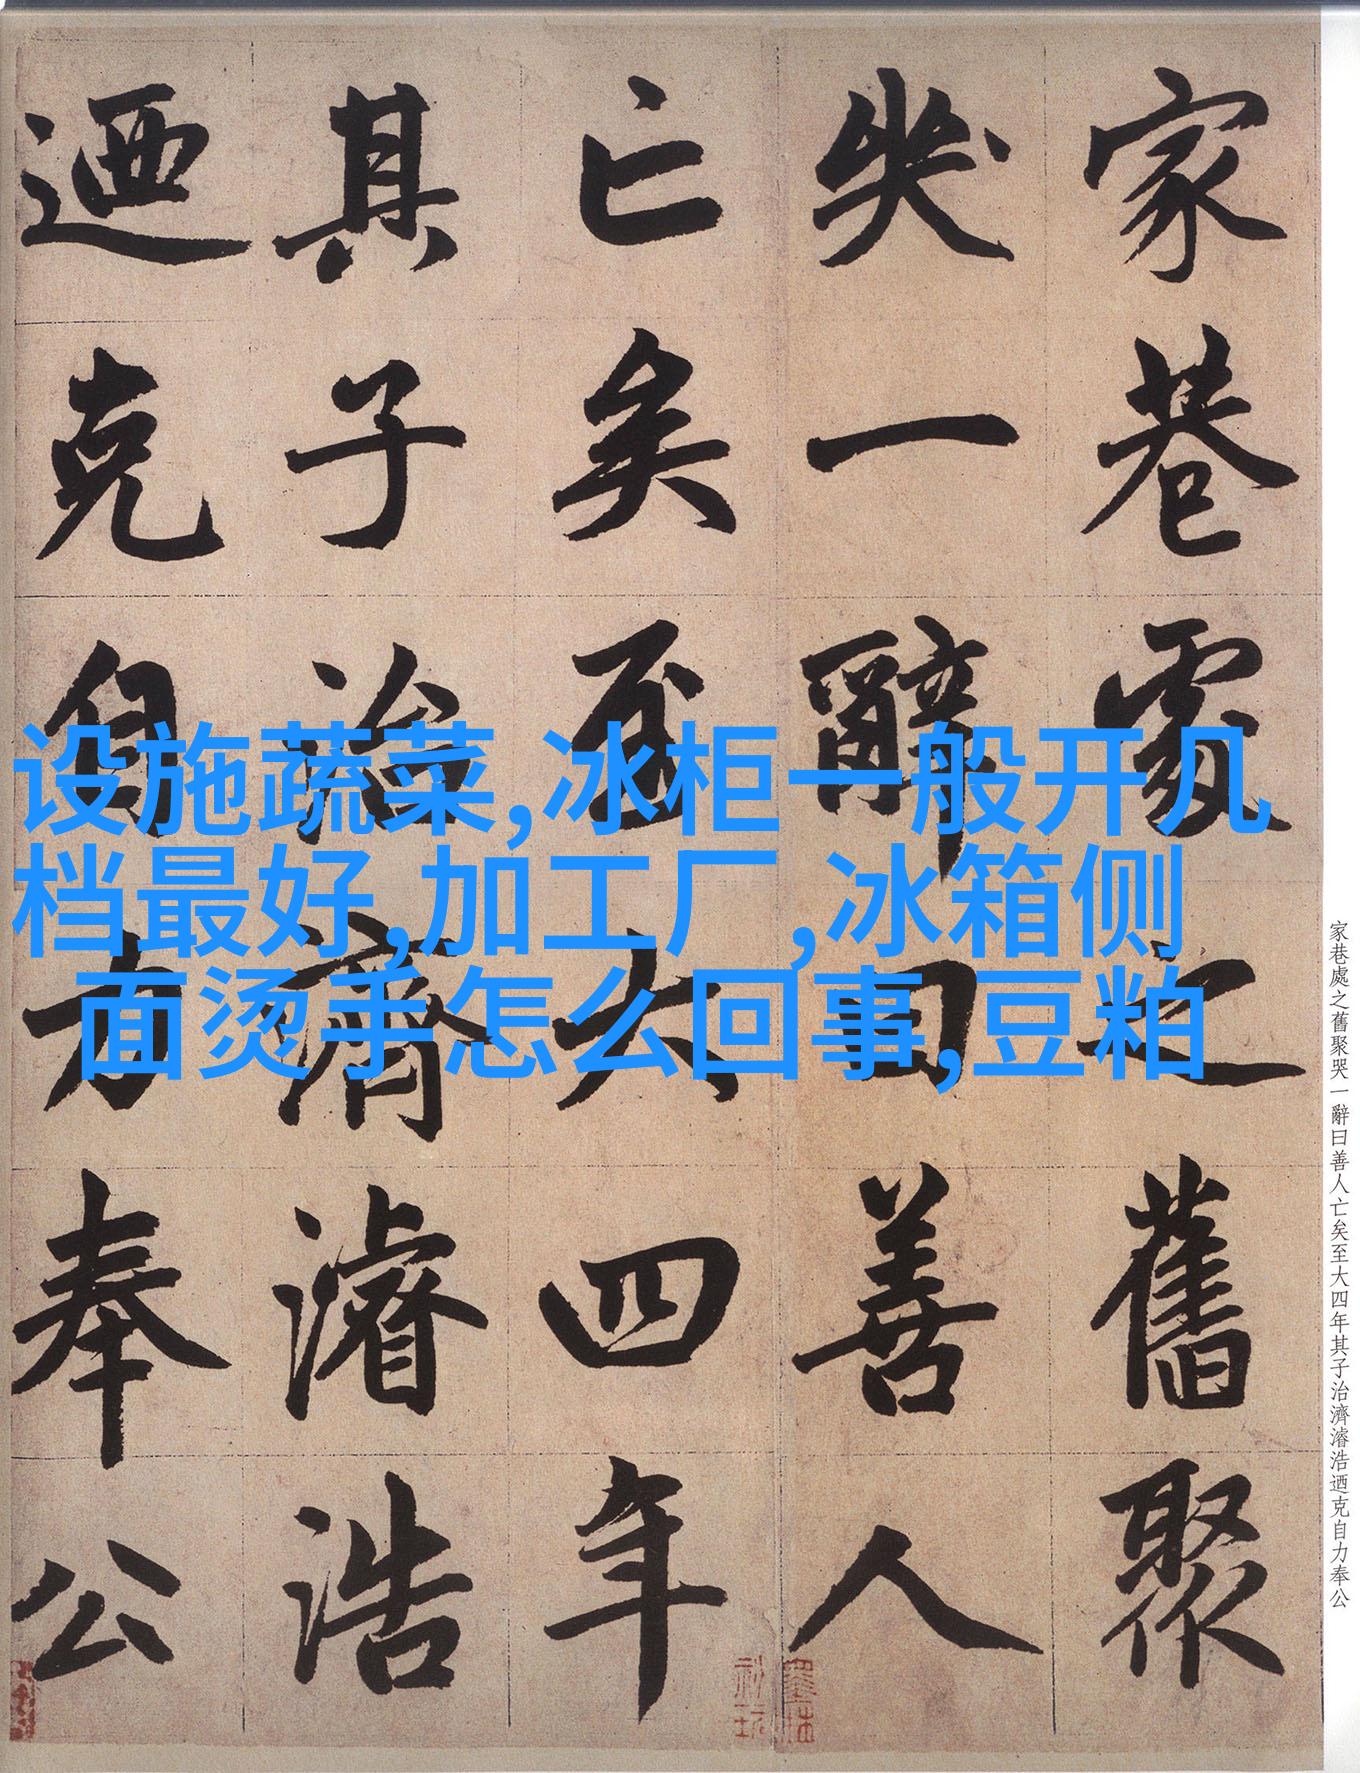 家巷處之舊聚
哭一辭曰善人
亡矣至大四年
其子治濟濬浩
迺克自力奉公
设施蔬菜,冰柜一般开几
档最好,加工厂,冰箱侧
面烫手怎么回事,豆粕
家巷處之舊聚哭一辭曰善人亡矣至大四年其子治濟濬浩迺克自力奉公